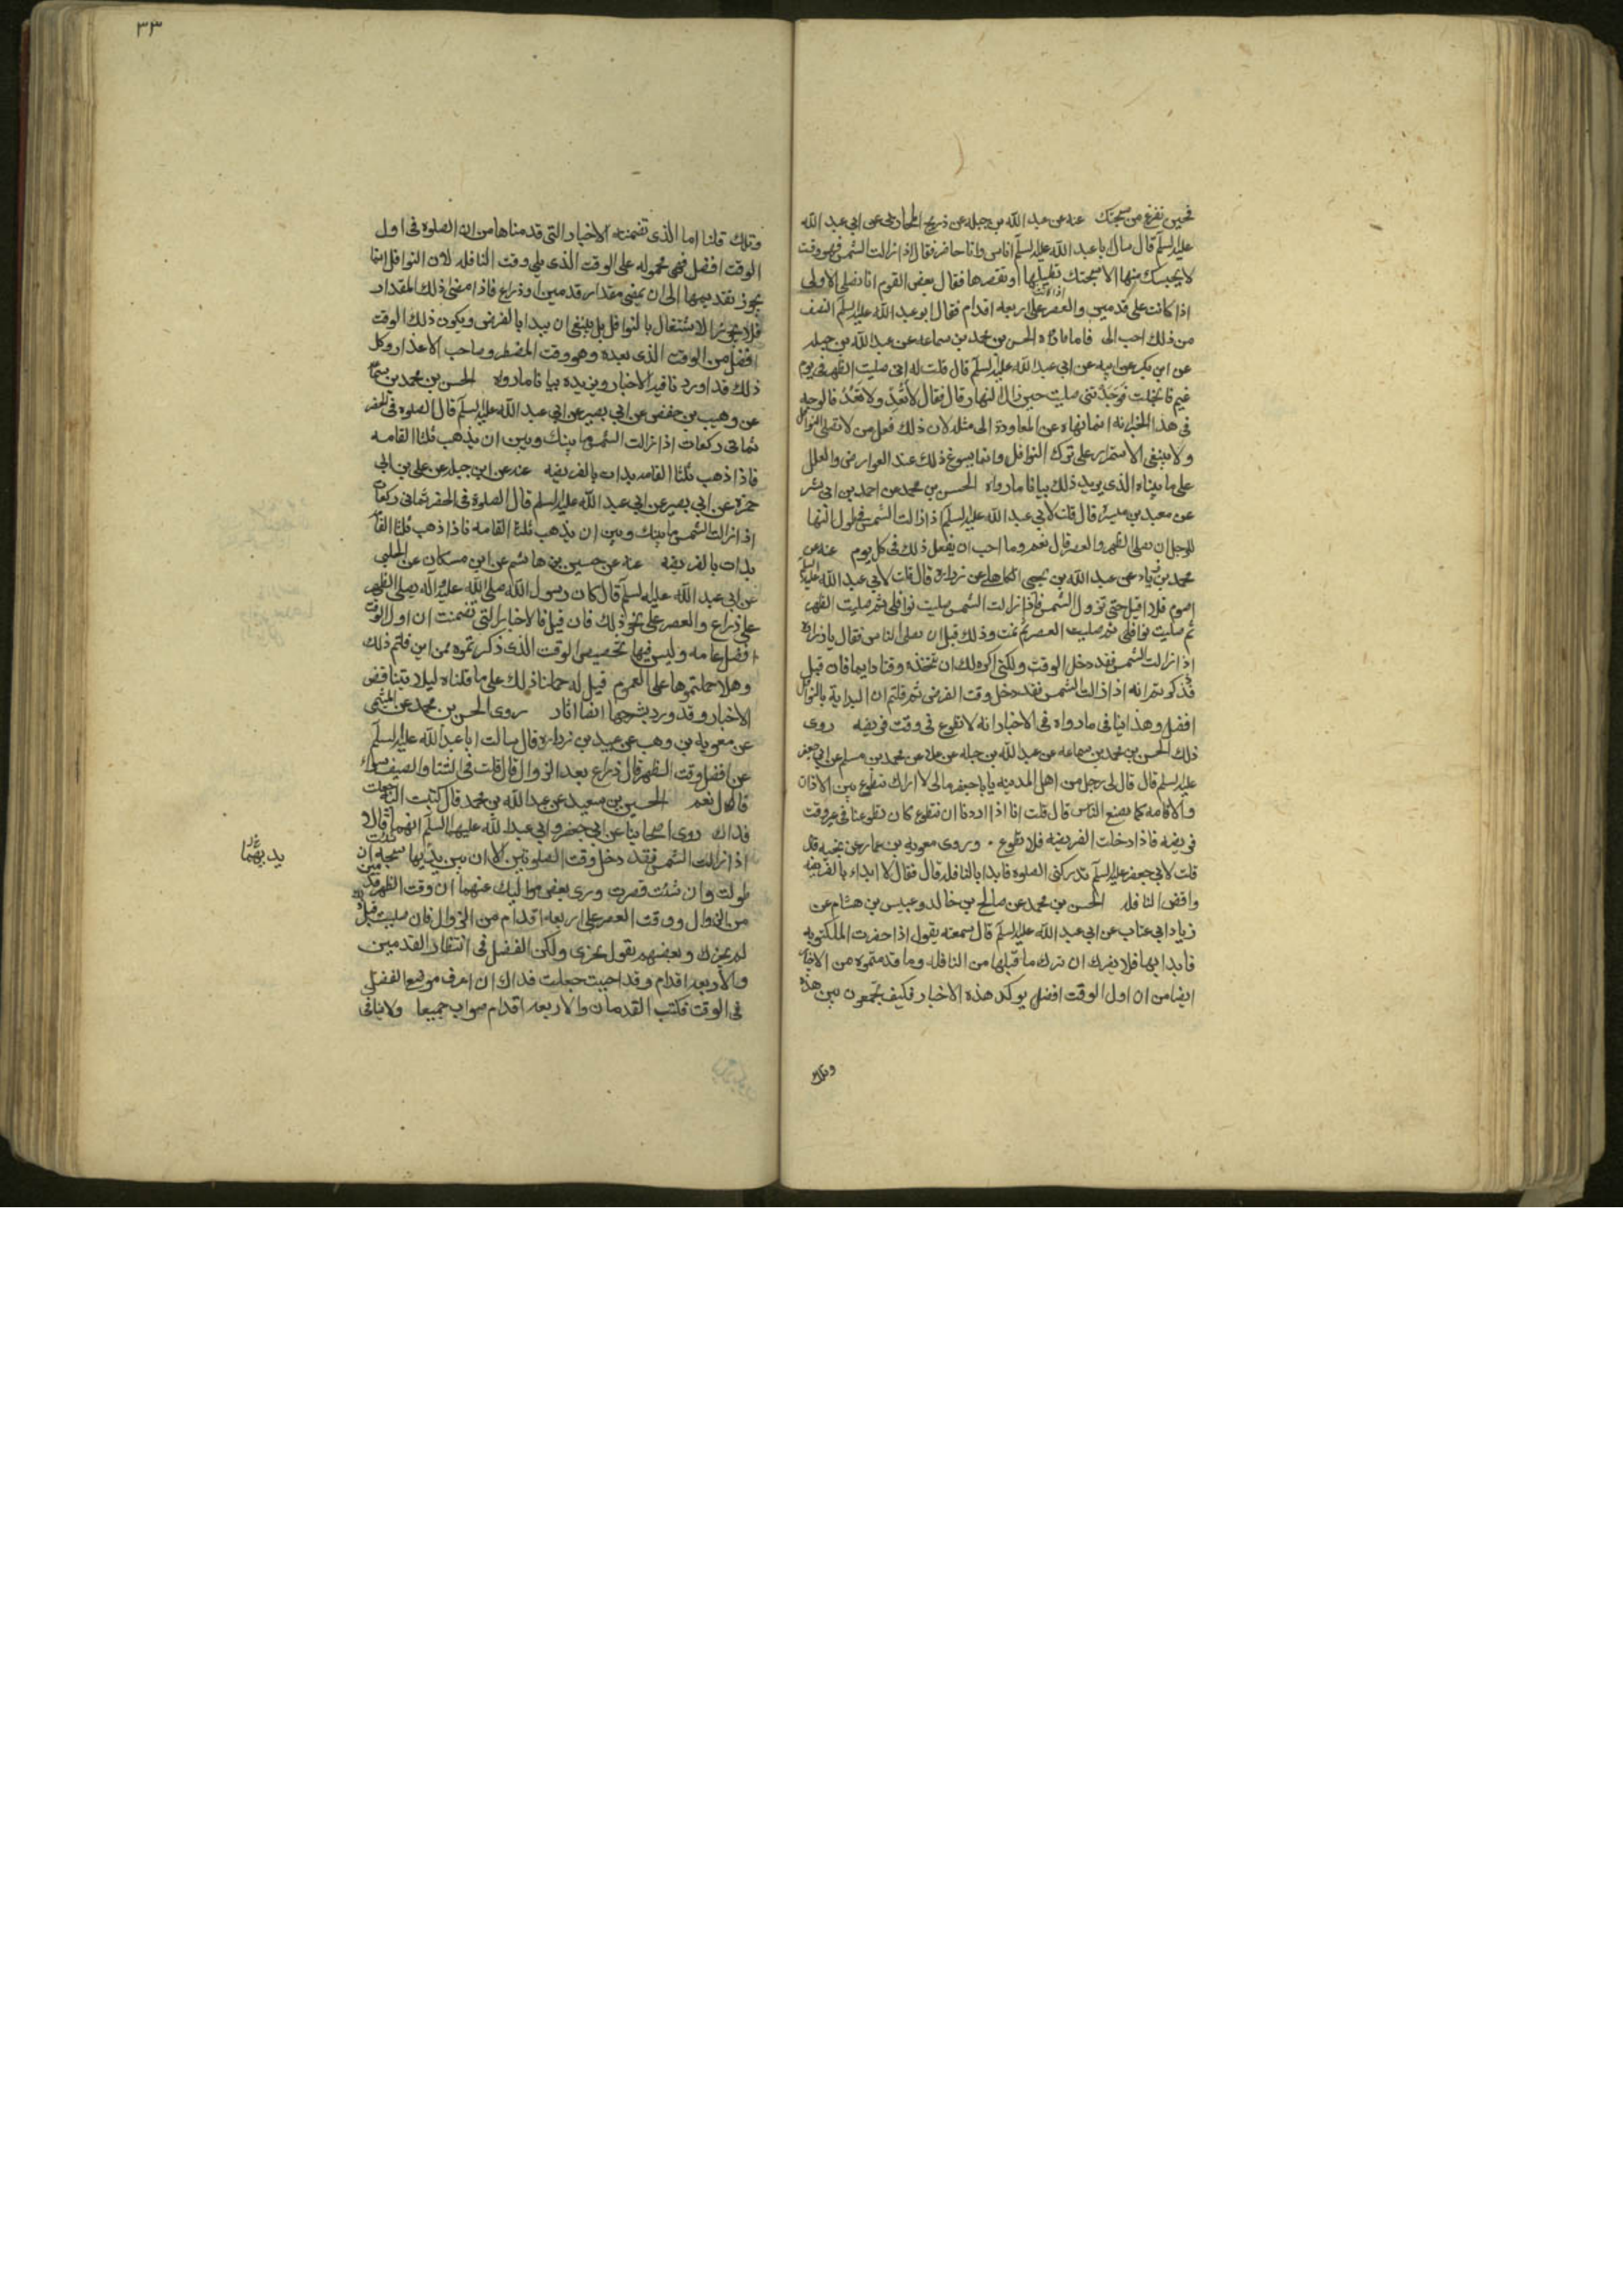 فحين تفرغ من سبحتك عنه عن عبد الله بن جبله عن ذريح المحاربي عن ابي عبد الله
عليه السلم قال سال ابا عبد الله عليه السلم اناس وانا حاضر فقال اذا زالت الشمس فهو وقت
لا يحبسك منها الا سبحتك تطيلها او تقصرها فقال بعض القوم انا نصلي الاولى
اذا كانت على قدمين والعصر على اربعه اقدام فقال ابو عبد الله عليه السلم النصف
من ذلك احب الى فاما ما رواه الحسن بن محمد بن سماعه عن عبد الله بن جبله
عن ابن بكير عن ابيه عن ابي عبد الله عليه السلم قال قلت له اني صليت الظهر في يوم
غيم فانجلت فوجدتني صليت حين زال النهار قال فقال لا تعد ولا تعد فالوجه
في هذا الخبر انه انما نهاه عن المعاودة الى مثله لان ذلك فعل من لا يصلي النوافل
ولا ينبغي الاستمرار على ترك النوافل وانما يسوغ ذلك عند العوارض والعلل
على ما بيناه الذي يويد ذلك بيانا ما رواه الحسن بن محمد عن احمد بن ابي بشر
عن معبد بن ميسرة قال قلت لابي عبد الله عليه السلم اذا زالت الشمس في طول النهار
للرجل ان يصلي الظهر والعصر قال نعم وما احب ان يفعل ذلك في كل يوم عنه عن
محمد بن زياد عن عبد الله بن يحيى الكاهلي عن زراره قال قلت لابي عبد الله عليه السلم
اصوم فلا اقيل حتى تزول الشمس فاذا زالت الشمس صليت نوافلي ثم صليت الظهر
ثم صليت نوافلي ثم صليت العصر ثم نمت وذلك قبل ان يصلي الناس فقال يا زراره
اذا زالت الشمس فقد دخل الوقت ولكني اكره لك ان تتخذه وقتا دايما فان قيل
قد ذكرتم انه اذا زالت الشمس فقد دخل وقت الفرض ثم قلتم ان البداية بالنوافل
افضل وهذا ينافي ما رواه في الاخبار انه لا تطوع في وقت فريضه روى
ذلك الحسن بن محمد بن سماعه عن عبد الله بن جبله عن علاء عن محمد بن مسلم عن ابي جعفر
عليه السلم قال قال لي رجل من اهل المدينه يا با جعفر مالى لا اراك تتطوع بين الاذان
والاقامه كما يصنع الناس قال قلت انا اذا اردنا ان نتطوع كان تطوعنا في غير وقت
فريضه فاذا دخلت الفريضه فلا تطوع . وروى معويه بن عمار عن نجيه قال
قلت لابي جعفر عليه السلم تدركني الصلوه فابدا بالنافله قال فقال لا ابداء بالفريضه
واقض النافله الحسن بن محمد عن صالح بن خالد وعبيس بن هشام عن
زياد ابي عتاب عن ابي عبد الله عليه السلم قال سمعته يقول اذا حضرت المكتوبه
فابدا بها فلا يضرك ان تترك ما قبلها من النافله وما قدمتموه من الاخبار
ايضا من ان اول الوقت افضل يوكد هذه الاخبار فكيف تجمعون بين هذه
وتلك
٣٣
وتلك قلنا اما الذي تضمنته الاخبار التي قدمناها من ان الصلوه في اول
الوقت افضل فهي محموله على الوقت الذي يلي وقت النافله لان النوافل انما
يجوز تقديمها الى ان يمضي مقدار قدمين او ذراع فاذا مضى ذلك المقدار
فلا يجوز الاشتغال بالنوافل بل ينبغي ان يبدا بالفرض ويكون ذلك الوقت
افضل من الوقت الذي بعده وهو وقت المضطر وصاحب الاعذار وكل
ذلك قد اورد نا فيه الاخبار ويزيده بيانا ما رواه الحسن بن محمد بن سماعه
عن وهيب بن حفص عن ابي بصير عن ابي عبد الله عليه السلم قال الصلوه في الحضر
ثماني ركعات اذا زالت الشمس ما بينك وبين ان يذهب ثلثا القامه
فاذا ذهب ثلثا القامه بدات بالفريضه عنه عن ابن جبله عن علي بن ابي
حمزه عن ابي بصير عن ابي عبد الله عليه السلم قال الصلوة في الحضر ثماني ركعات
اذا زالت الشمس ما بينك وبين ان يذهب ثلثا القامه فاذا ذهب ثلثا القامه
بدات بالفريضه عنه عن حسين بن هاشم عن ابن مسكان عن الحلبي
عن ابي عبد الله عليه السلم قال كان رسول الله صلى الله عليه واله يصلي الظهر
على ذراع والعصر على نحو ذلك فان قيل فالاخبار التي تضمنت ان اول الوقت
افضل عامه وليس فيها تخصيص الوقت الذي ذكرتموه فمن اين قلتم ذلك
وهلا حملتموها على العموم قيل له حملنا ذلك على ما قلناه ليلا يتناقض
الاخبار وقد ورد بشرحها ايضا اثار روى الحسن بن محمد عن الميثمي
عن معويه بن وهب عن عبيد بن زراره قال سالت ابا عبد الله عليه السلم
عن افضل وقت الظهر قال ذراع بعد الزوال قال قلت في الشتا والصيف سواء
قال نعم الحسين بن سعيد عن عبد الله بن محمد قال كتبت اليه جعلت
فداك روى اصحابنا عن ابي جعفر وابي عبد الله عليهما السلم انهما قالا
اذا زالت الشمس فقد دخل وقت الصلوتين الا ان بين يديها سبحه ان شئت
طولت وان شئت قصرت وروى بعض مواليك عنهما ان وقت الظهر على قدمين
من الزوال ووقت العصر على اربعه اقدام من الزوال فان صليت قبل ذلك
لم يجزك وبعضهم يقول يجزى ولكن الفضل في انتظار القدمين
والاربعه اقدام وقد احببت جعلت فداك ان اعرف موضع الفضل
في الوقت فكتب القدمان والاربعه اقدام صواب جميعا ولا ينافي